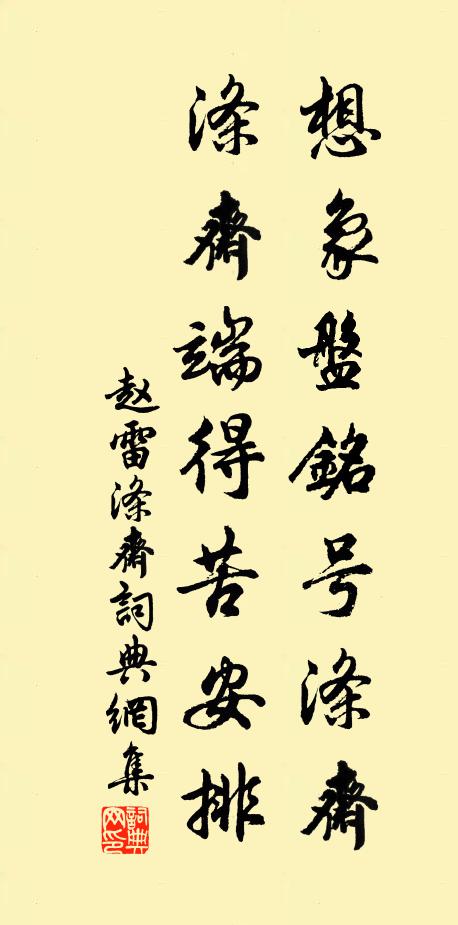 想象盤銘号涤齋
涤齋端得苦安排
赵雷涤齋詞典網集
詞典网印